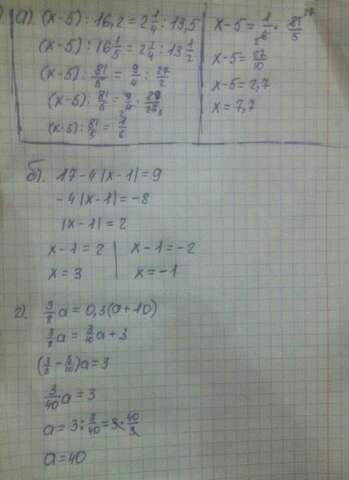 а) (x-5) : 16,2 = 2 1/4 : 13,5
(x-5) : 16 1/5 = 2 1/4 : 13 1/2
(x-5) : 81/5 = 9/4 : 27/2
(x-5) : 81/5 = 9/4 ·
(x-5) : 81/5 = 1/6
x-5 = 1/6 · 81/5
x-5 = 27/10
x-5 = 2,7
x = 7,7
б). 17-4|x-1| = 9
-4|x-1| = -8
|x-1| = 2
x-1 = 2 | x-1 = -2
x = 3 | x = -1
г). 3/8 a = 0,3(a+10)
3/8 a = 3/10 a + 3
(3/8 - 3/10)a = 3
3/40 a = 3
a = 3 : 3/40 = 3 · 40/3
a = 40